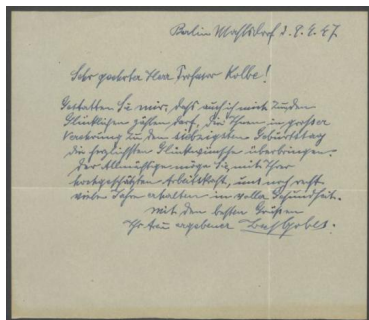 Berlin Mahlsdorf d. 8.4.47.
Sehr geehrter Herr Professor Kolbe!
Gestatten Sie mir, daß auch ich mich zu den
Glücklichen zählen darf, die Ihnen in großer
Verehrung zu dem siebzigsten Geburtstag
die herzlichsten Glückwünsche überbringen.
Der Allmächtige möge Sie mit Ihrer
hochgeschätzten Arbeitskraft, uns noch recht
viele Jahre erhalten in voller Gesundheit.
Mit den besten Grüßen
Ihr ergebener